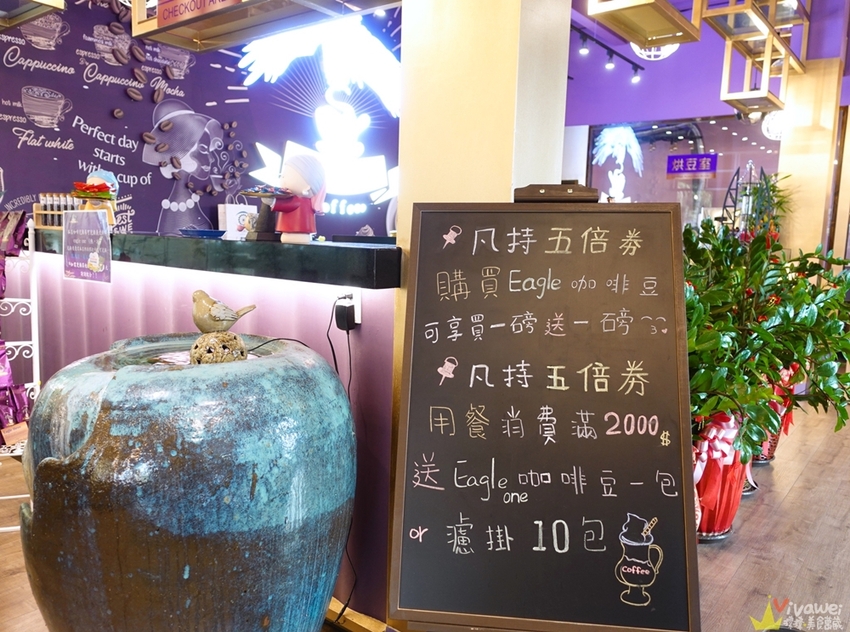 CHECKOUT AND
espresso
Cappuccino
espresso
Cappuccino
Mocha
hot milk
espresso
Flat white
Perfect day
starts
with a cup of
INCREDIBLY
Coffee
烘豆室
凡持五倍券
購買Eagle咖啡豆
可享買一磅送一磅
凡持五倍券
用餐消費滿2000$
送Eagle one咖啡豆一包
or 濾掛10包
Coffee
Vivawei